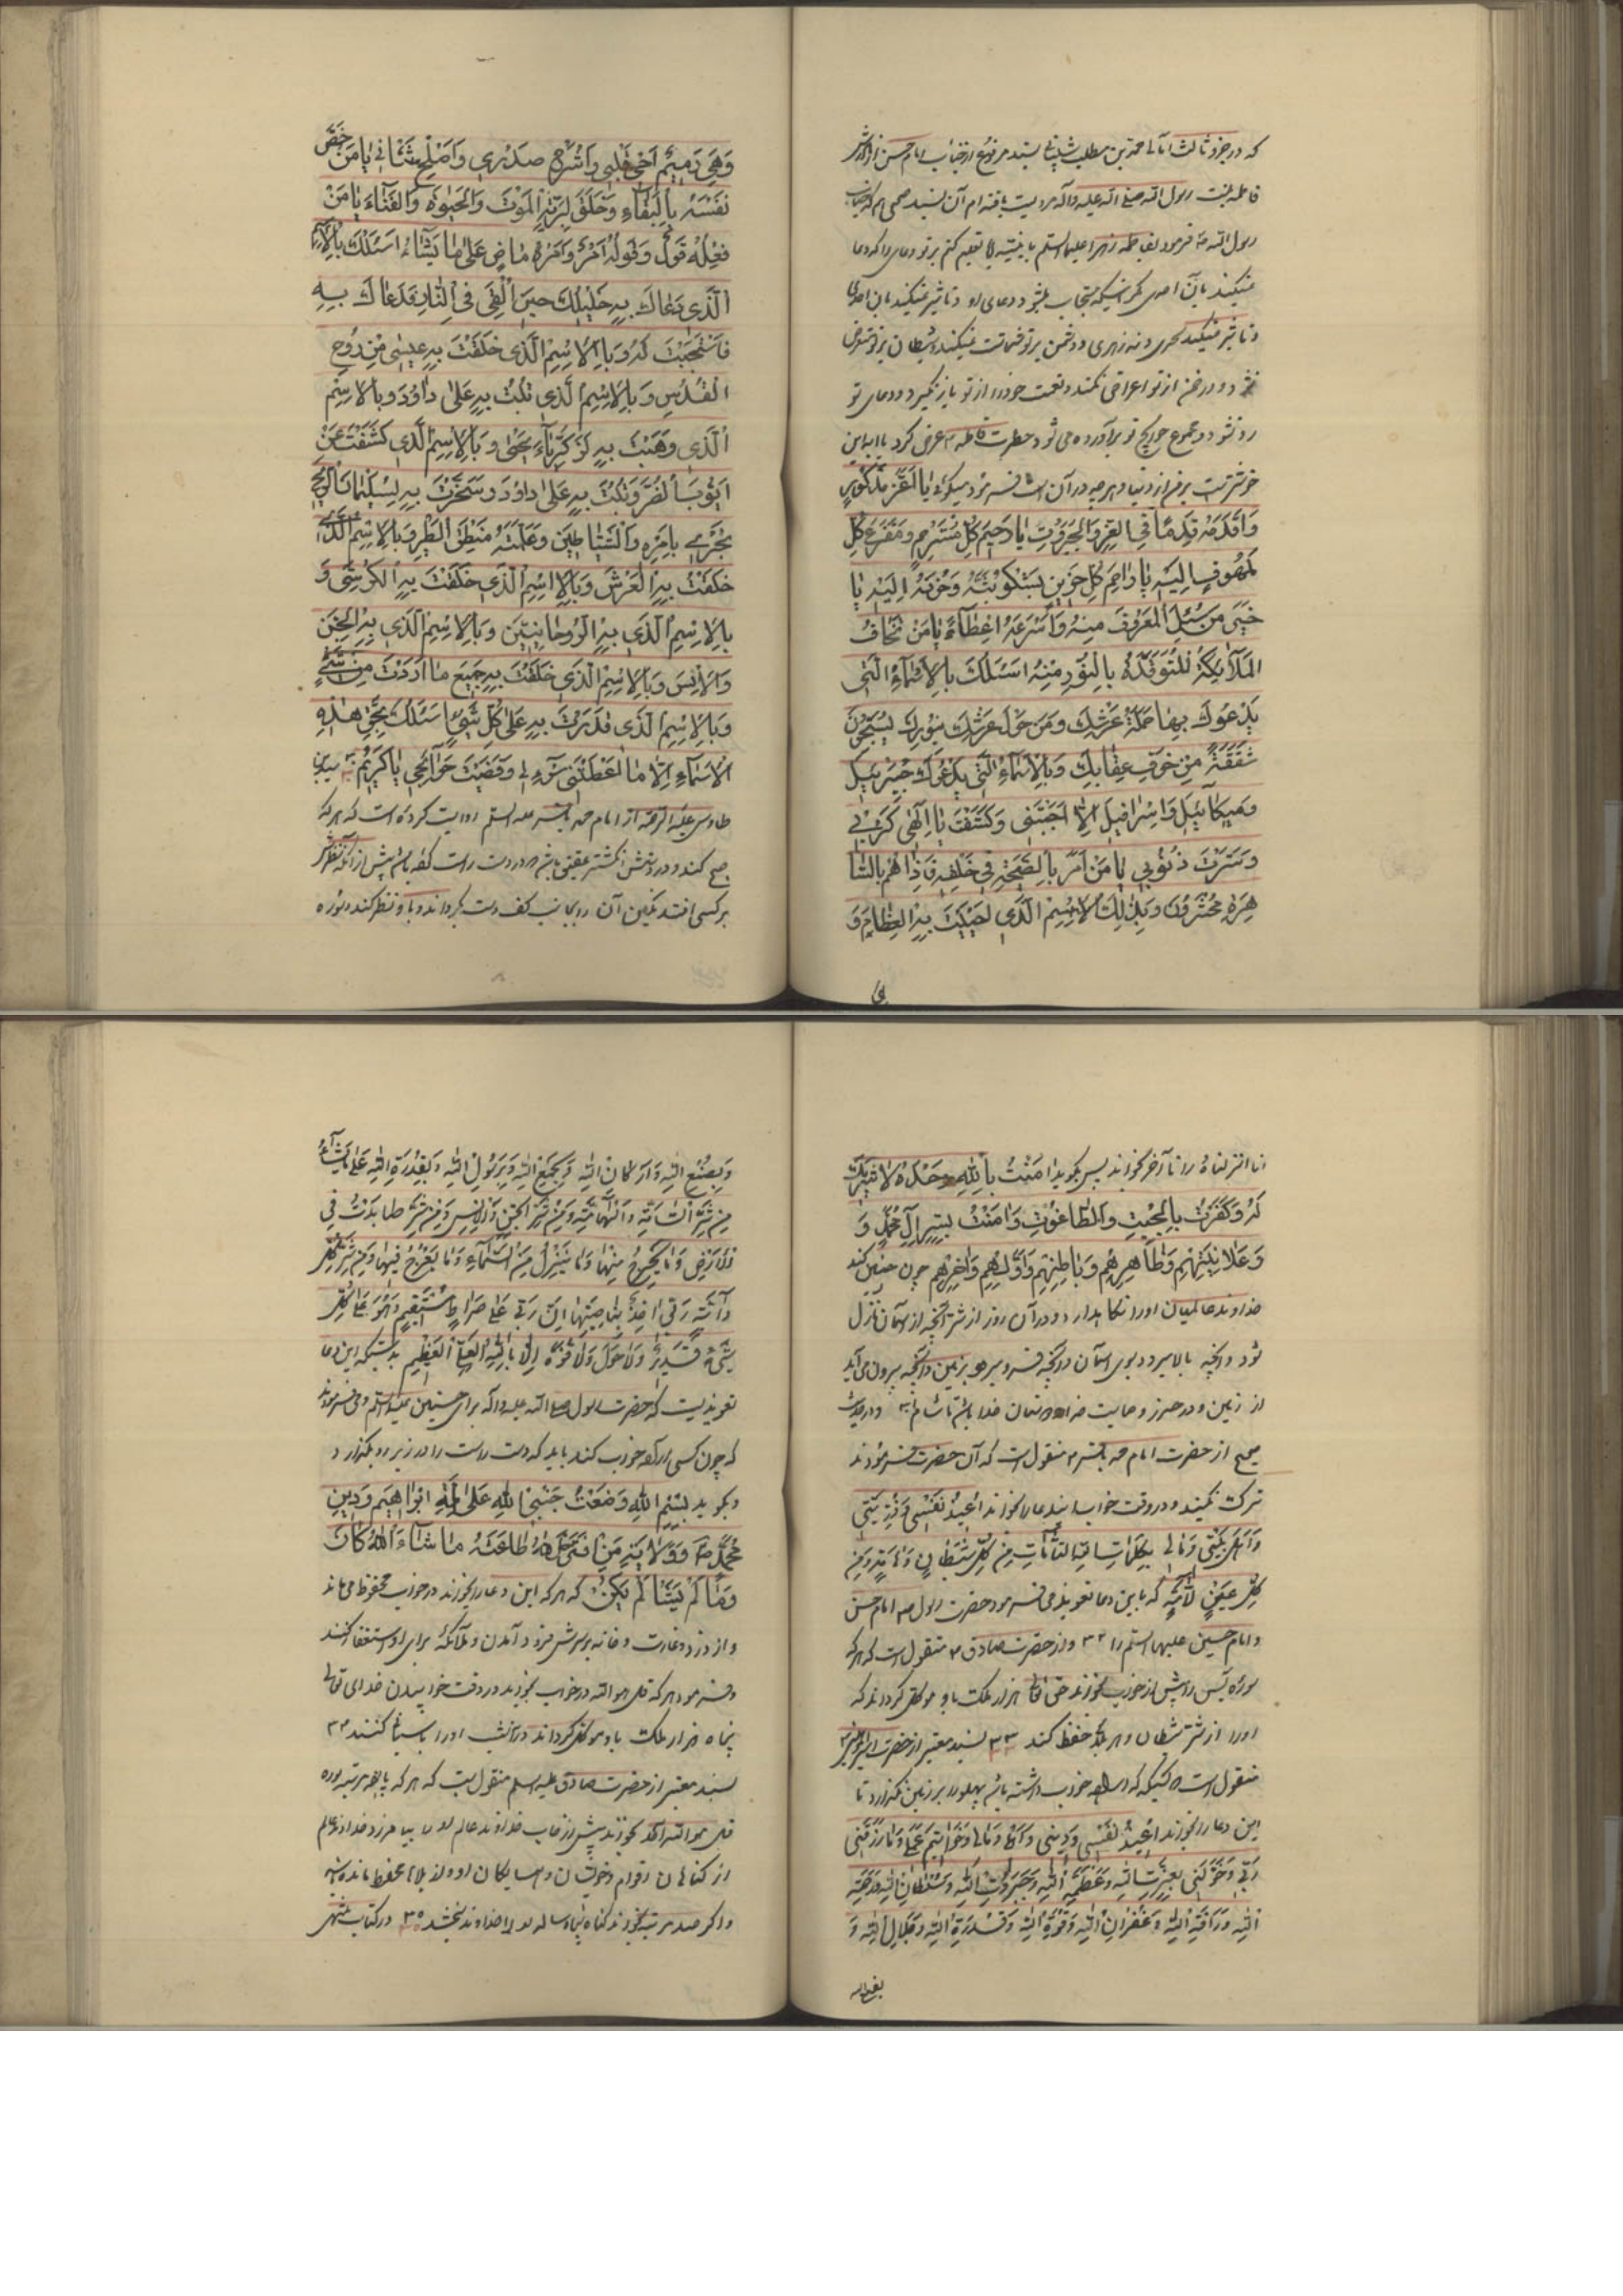 که در جزو ثالث امالی محمد بن مطلب شیبانی بسند مرفوع از جناب امام حسن از مادرش
فاطمه بنت رسول الله صلی الله علیه وآله روایت یافته ام آن بسند صحیح که جناب
رسول الله ص فرمود بفاطمه زهرا علیها السلم یا بنیتی تعلیم کنم بر تو دعای را که دعا
نمیکند بآن احدی مگر اینکه مستجاب میشود دعای او و تاثیر نمیکند بآن احدی
و تاثیر نمیکند سحری و نه زهری و دشمن بر تو شماتت نمیکند و شیطان بر تو متعرض
نشود و رحمن از تو اعراض نکند و نعمت خود را از تو باز نگیرد و دعای تو
رد نشود و مجموع حوایج تو برآورده می شود حضرت فاطمه ع عرض کرد یا ابه این
خوشتر است بر من از دنیا و هر چه در آن است فرمود میگوئی یا اعز مذکور
وَاَقْدَمَهُ قِدَمًا فِی العِزِّ وَالجَبَرُوتِ یا رَحیمَ كُلِّ مُسْتَرْحِمٍ وَمَفْزَعَ كُلِّ
مَلهُوفٍ اِلَیهِ یا راحِمَ كُلِّ حَزینٍ یَشْكُو بَثَّهُ وَحُزْنَهُ اِلَیْهِ یا
خَیرَ مَن سُئِلَ المَعْرُوفُ مِنْهُ وَاَسْرَعَهُ اِعْطآءً یا مَنْ تَخافُ
المَلآئِكَةُ المُتَوَقِّدَةُ بِالنُّورِ مِنْهُ اَسْئَلُكَ بِالاَسْمآءِ الَّتی
یَدْعُوكَ بِها حَمَلَةُ عَرْشِكَ وَمَن حَوْلَ عَرْشِكَ بِنُورِكَ یُسَبِّحُونَ
شَفَقَةً مِن خَوْفِ عِقابِكَ وَبِالاَسْماءِ الَّتی یَدْعُوكَ جِبْرَئیلُ
وَمیكآئیلُ وَاِسْرافیلُ اِلاّ اَجَبْتَنی وَكَشَفْتَ یا اِلهی كُرْبَتی
وَسَتَرْتَ ذُنُوبی یا مَن اَمَرَ بِالصَّیْحَةِ فی خَلْقِهِ فَاِذا هُم بِالسّا
هِرَةِ مُحْشَرُونَ وَبِذلِكَ الاِسْمِ الَّذی اَحْیَیْتَ بِهِ العِظامَ وَ
هی
وَهِیَ رَمیمٌ اَحْیِ قَلْبی وَاشْرَحْ صَدْری وَاَصْلِحْ شَاْنی یا مَنْ خَصَّ
نَفْسَهُ بِالبَقآءِ وَخَلَقَ لِبَرِیَّتِهِ المَوْتَ وَالحَیوةَ وَالفَنآءَ یا مَنْ
فِعْلُهُ قَوْلٌ وَقَوْلُهُ اَمْرٌ وَاَمْرُهُ ماضٍ عَلی ما یَشآءُ اَسْئَلُكَ بِالاِسْمِ
الَّذی دَعاكَ بِهِ خَلیلُكَ حینَ اُلْقِیَ فِی النّارِ فَدَعاكَ بِهِ
فَاسْتَجَبْتَ لَهُ وَبِالاِسْمِ الَّذی خَلَقْتَ بِهِ عیسی مِن رُوحِ
القُدُسِ وَبِالاِسْمِ الَّذی تُبْتَ بِهِ عَلی داوُدَ وَبِالاِسْمِ
الَّذی وَهَبْتَ بِهِ لِزَكَرِیّآءَ یَحْیی وَبِالاِسْمِ الَّذی كَشَفْتَ عَنْ
اَیُّوبَ الضُّرَّ وَتُبْتَ بِهِ عَلی داوُدَ وَسَخَّرْتَ بِهِ لِسُلَیْمانَ الرّیحَ
تَجْری بِاَمْرِهِ وَالشَّیاطینَ وَعَلَّمْتَهُ مَنْطِقَ الطَّیْرِ وَبِالاِسْمِ الَّذی
خَلَقْتَ بِهِ العَرْشَ وَبِالاِسْمِ الَّذی خَلَقْتَ بِهِ الكُرْسِیَّ وَ
بِالاِسْمِ الَّذی بِهِ الرُّوحانِیّینَ وَبِالاِسْمِ الَّذی بِهِ الجِنَّ
وَالاِنْسَ وَبِالاِسْمِ الَّذی خَلَقْتَ بِهِ جَمیعَ ما اَرَدْتَ مِن شَیْءٍ
وَبِالاِسْمِ الَّذی قَدَرْتَ بِهِ عَلی كُلِّ شَیْءٍ اَسْئَلُكَ بِحَقِّ هذِهِ
الاَسْمآءِ اِلاّ ما اَعْطَیْتَنی سُؤْلی وَقَضَیْتَ حَوآئِجی یا كَریمُ سید بن
طاوس علیه الرحمه از امام محمد باقر علیه السلم روایت کرده است که هر که
صبح کند و در دستش انگشتر عقیق باشد در دست راست کند پیش از آنکه نظرش
بر کسی افتد نگین آن را بجانب کف دست بگرداند و باو نظر کند و سوره
انا انزلناه را تا آخر بخواند پس بگوید امَنْتُ بِاللهِ وَحْدَهُ لا شَریكَ
لَهُ وَكَفَرْتُ بِالجِبْتِ وَالطّاغُوتِ وَامَنْتُ بِسِرِّ الِ مُحَمَّدٍ وَ
وَعَلانِیَتِهِمْ وَظاهِرِهِمْ وَباطِنِهِمْ وَاَوَّلِهِمْ وَاخِرِهِمْ چون چنین کند
خداوند عالمیان او را نگاهدارد در آن روز از شر آنچه از آسمان نازل
شود و آنچه بالا میرود بسوی آسمان و آنچه فرو میرود بزمین و آنچه بیرون می آید
از زمین و در حرز و حمایت خدا و دوستان خدا باشد تا شام و در حدیث
صحیح از حضرت امام محمد باقر ع منقول است که آن حضرت فرمودند
ترک نکنید در وقت خواب این دعا را بخوانند اُعیذُ نَفْسی وَذُرِّیَّتی
وَاَهْلَ بَیْتی وَمالی بِكَلِماتِ اللهِ التّآمّاتِ مِن كُلِّ شَیْطانٍ وَهآمَّةٍ وَمِن
كُلِّ عَیْنٍ لآمَّةٍ که باین دعا تعویذ می فرمود حضرت رسول ص امام حسن
و امام حسین علیهما السلم را ۳۲ و از حضرت صادق ع منقول است که هر که
سوره یس را پیش از خواب بخواند حق تعالی هزار ملک باو موکل گرداند که
او را از شر شیطان و هر بلا حفظ کند ۳۳ بسند معتبر از حضرت امیرالمؤمنین ع
منقول است کسیکه اراده خواب داشته باشد پهلو را بر زمین نگذارد تا
این دعا را بخواند اُعیذُ نَفْسی وَدینی وَاَهْلی وَمالی وَخَواتیمَ عَمَلی وَما رَزَقَنی
رَبّی وَخَوَّلَنی بِعِزَّةِ اللهِ وَعَظَمَةِ اللهِ وَجَبَرُوتِ اللهِ وَسُلْطانِ اللهِ وَرَحْمَةِ
اللهِ وَرَاْفَةِ اللهِ وَغُفْرانِ اللهِ وَقُوَّةِ اللهِ وَقُدْرَةِ اللهِ وَجَلالِ اللهِ وَ
بصنع الله
وَبِصُنْعِ اللهِ وَاَرْكانِ اللهِ وَبِجَمْعِ اللهِ وَبِرَسُولِ اللهِ وَبِقُدْرَةِ اللهِ عَلی ما یَشآءُ
مِن شَرِّ السّآمَّةِ وَالهآمَّةِ وَمِن شَرِّ الجِنِّ وَالاِنْسِ وَمِن شَرِّ ما یَدِبُّ فِی
الاَرْضِ وَما یَخْرُجُ مِنْها وَما یَنْزِلُ مِنَ السَّمآءِ وَما یَعْرُجُ فیها وَمِن شَرِّ كُلِّ
دآبَّةٍ رَبّی اخِذٌ بِناصِیَتِها اِنَّ رَبّی عَلی صِراطٍ مُسْتَقیمٍ وَهُوَ عَلی كُلِّ
شَیْءٍ قَدیرٌ وَلا حَوْلَ وَلا قُوَّةَ اِلاّ بِاللهِ العَلِیِّ العَظیمِ بدرستیکه این دعا
تعویذیست که حضرت رسول صلی الله علیه وآله برای حسنین علیهما السلم می فرمودند
که چون کسی اراده خواب کند باید که دست راست را در زیر رو بگذارد
و بگوید بِسْمِ اللهِ وَضَعْتُ جَنْبی لِلّهِ عَلی مِلَّةِ اِبْراهیمَ وَدینِ
مُحَمَّدٍ ص وَوِلایَةِ مَنِ افْتَرَضَ اللهُ طاعَتَهُ ما شآءَ اللهُ كانَ
وَما لَمْ یَشَاْ لَمْ یَكُنْ که هر که این دعا را بخواند در خواب محفوظ می ماند
و از دزد و غارت و خانه بر سرش فرود آمدن و ملائکه برای او استغفار کنند
و فرمود هر که قل هو الله در خواب بخواند در وقت خوابیدن خدای تعالی
پنجاه هزار ملک باو موکل گرداند در آن شب او را پاسبانی کنند ۳۴
بسند معتبر از حضرت صادق علیه السلم منقول است که هر که یازده مرتبه سوره
قل هو الله احد بخواند پیش از خواب خداوند عالم او را بیامرزد خداوند عالم
از گناهان اقوام و خویشان و همسایگان او و از بلاها محفوظ ماند
و اگر صد مرتبه بخواند گناه پنجاه ساله او را خداوند ببخشد ۳۵ در کتاب منتهی